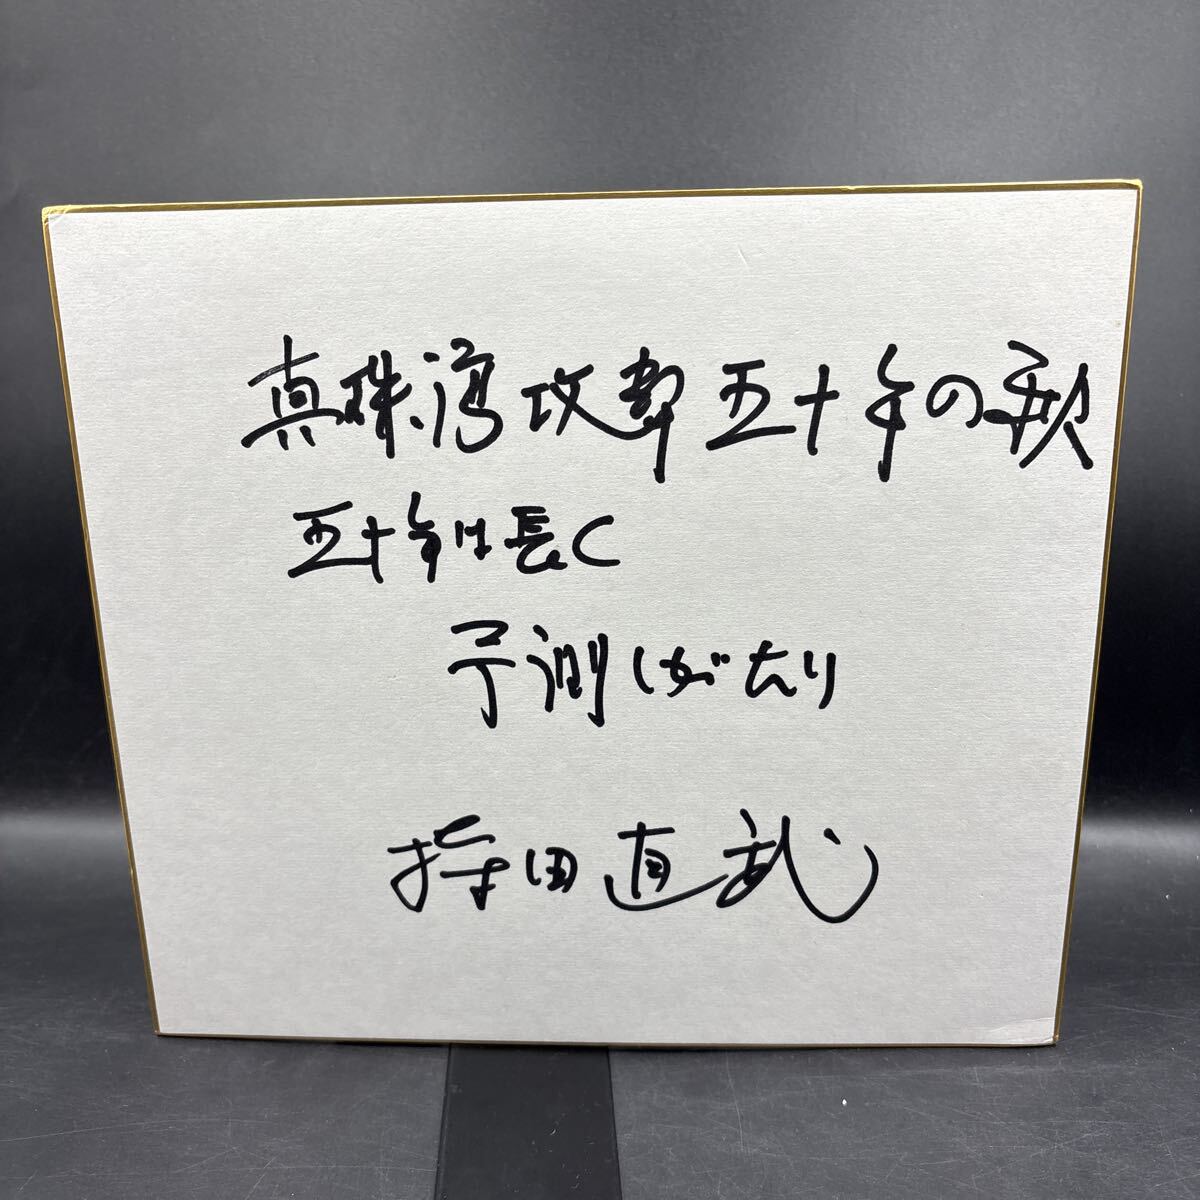 真珠湾攻撃五十年の秋
五十年は長く
予測しがたり
持田直武